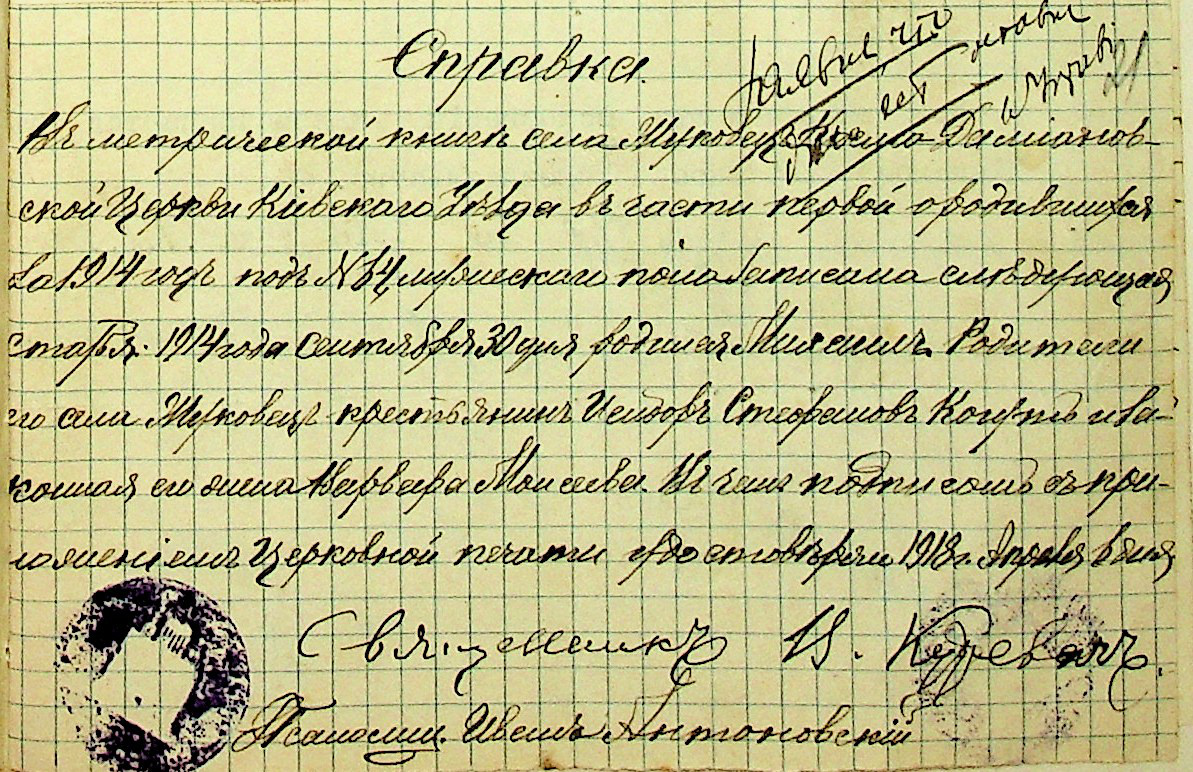 Справка.
Въ метрической книгѣ села Жуковецъ Космо Даміанов-
ской Церкви Кіевскаго Уѣзда въ части первой о родившихся
за 1914 годъ подъ № 64 мужескаго пола записана слѣдующая
статья: 1914 года Сентября 30 дня родился Михаилъ. Родители
его села Жуковецъ крестьянинъ Исидоръ Стефановъ Когутъ и за-
конная его жена Варвара Моисеева. Въ чемъ подписомъ съ при-
ложеніемъ Церковной печати удостовѣряю 1918 г. Апрѣля 6 дня
Священникъ
Псаломщ. Иванъ Антоновскій